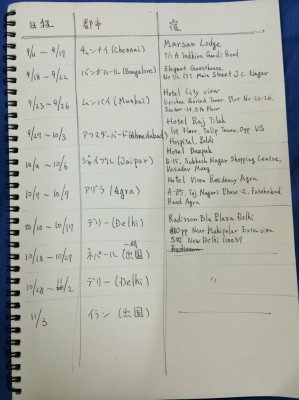 日程 都市 宿
9/11 ~ 9/17 チェンナイ (Chennai) Marsan Lodge
7/1 A Indhira Gandi Road
9/18 ~ 9/22 バンガルール (Bangalore) Elegant Guesthouse
No 1/12 1st Main Street J.C. Nagar
9/23 ~ 9/26 ムンバイ (Mumbai) Hotel City view
Krishna Tower, Plot No-22-26,
Sector-24, 5th Floor
9/27 ~ 10/3 アフマダーバード (Ahmedabad) Hotel Raj Tilak
1st Floor, Tulip Tower, Opp. VS
Hospital, Paldi
10/4 ~ 10/6 ジャイプル (Jaipur) Hotel Deepak
B-15, Subhash Nagar Shopping Centre,
10/7 ~ 10/9 アグラ (Agra) Hotel View Residency Agra
A-85, Taj Nagari Phase-2, Fatehabad
Road Agra
10/10 ~ 10/17 デリー (Delhi) Radisson Blu Plaza Delhi
Near Mahipalpur Extension
New Delhi 110037
10/18 ~ 10/27 ネパール (一時出国)
10/28 ~ 11/2 デリー (Delhi) 〃
11/3 イラン (出国)